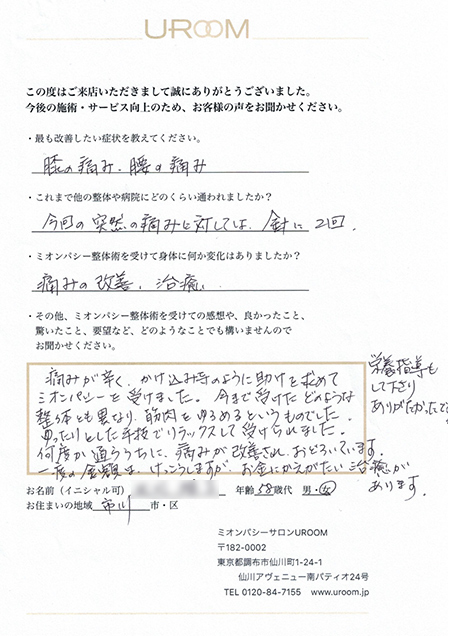 UROOM
この度はご来店いただきまして誠にありがとうございました。
今後の施術・サービス向上のため、お客様の声をお聞かせください。
・最も改善したい症状を教えてください。
膝の痛み、腰の痛み
・これまで他の整体や病院にどのくらい通われましたか？
今回の突然の痛みに対しては、針に2回。
・ミオンパシー整体術を受けて身体に何か変化はありましたか？
痛みの改善、治癒、
・その他、ミオンパシー整体術を受けての感想や、良かったこと、
驚いたこと、要望など、どのようなことでも構いませんので
お聞かせください。
痛みが辛く、かけ込み寺のように助けを求めて
ミオンパシーを受けました。今まで受けたどのような
整体とも異なり、筋肉をゆるめるというものでした。
ゆったりとした手技でリラックスして受けられました。
何度か通ううちに、痛みが改善され、おどろいています。
一度の金額は、けっこうしますが、お金にかえがたい治癒が
あります。
栄養指導も
して下さり
ありがたかったで
お名前（イニシャル可） 年齢 58歳代 男・女
お住まいの地域 市川 市・区
ミオンパシーサロンUROOM
〒182-0002
東京都調布市仙川町1-24-1
仙川アヴェニュー南パティオ24号
TEL 0120-84-7155 www.uroom.jp